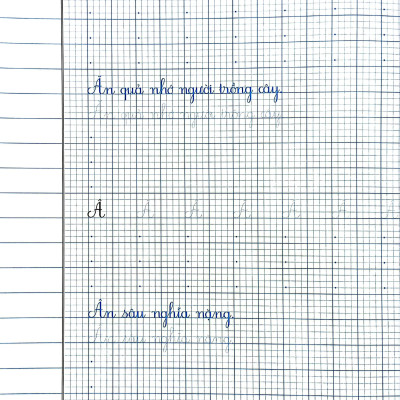 Ăn quả nhớ người trồng cây.
Ăn quả nhớ người trồng cây.
Â Â Â Â Â Â Â
Ân sâu nghĩa nặng.
Ân sâu nghĩa nặng.